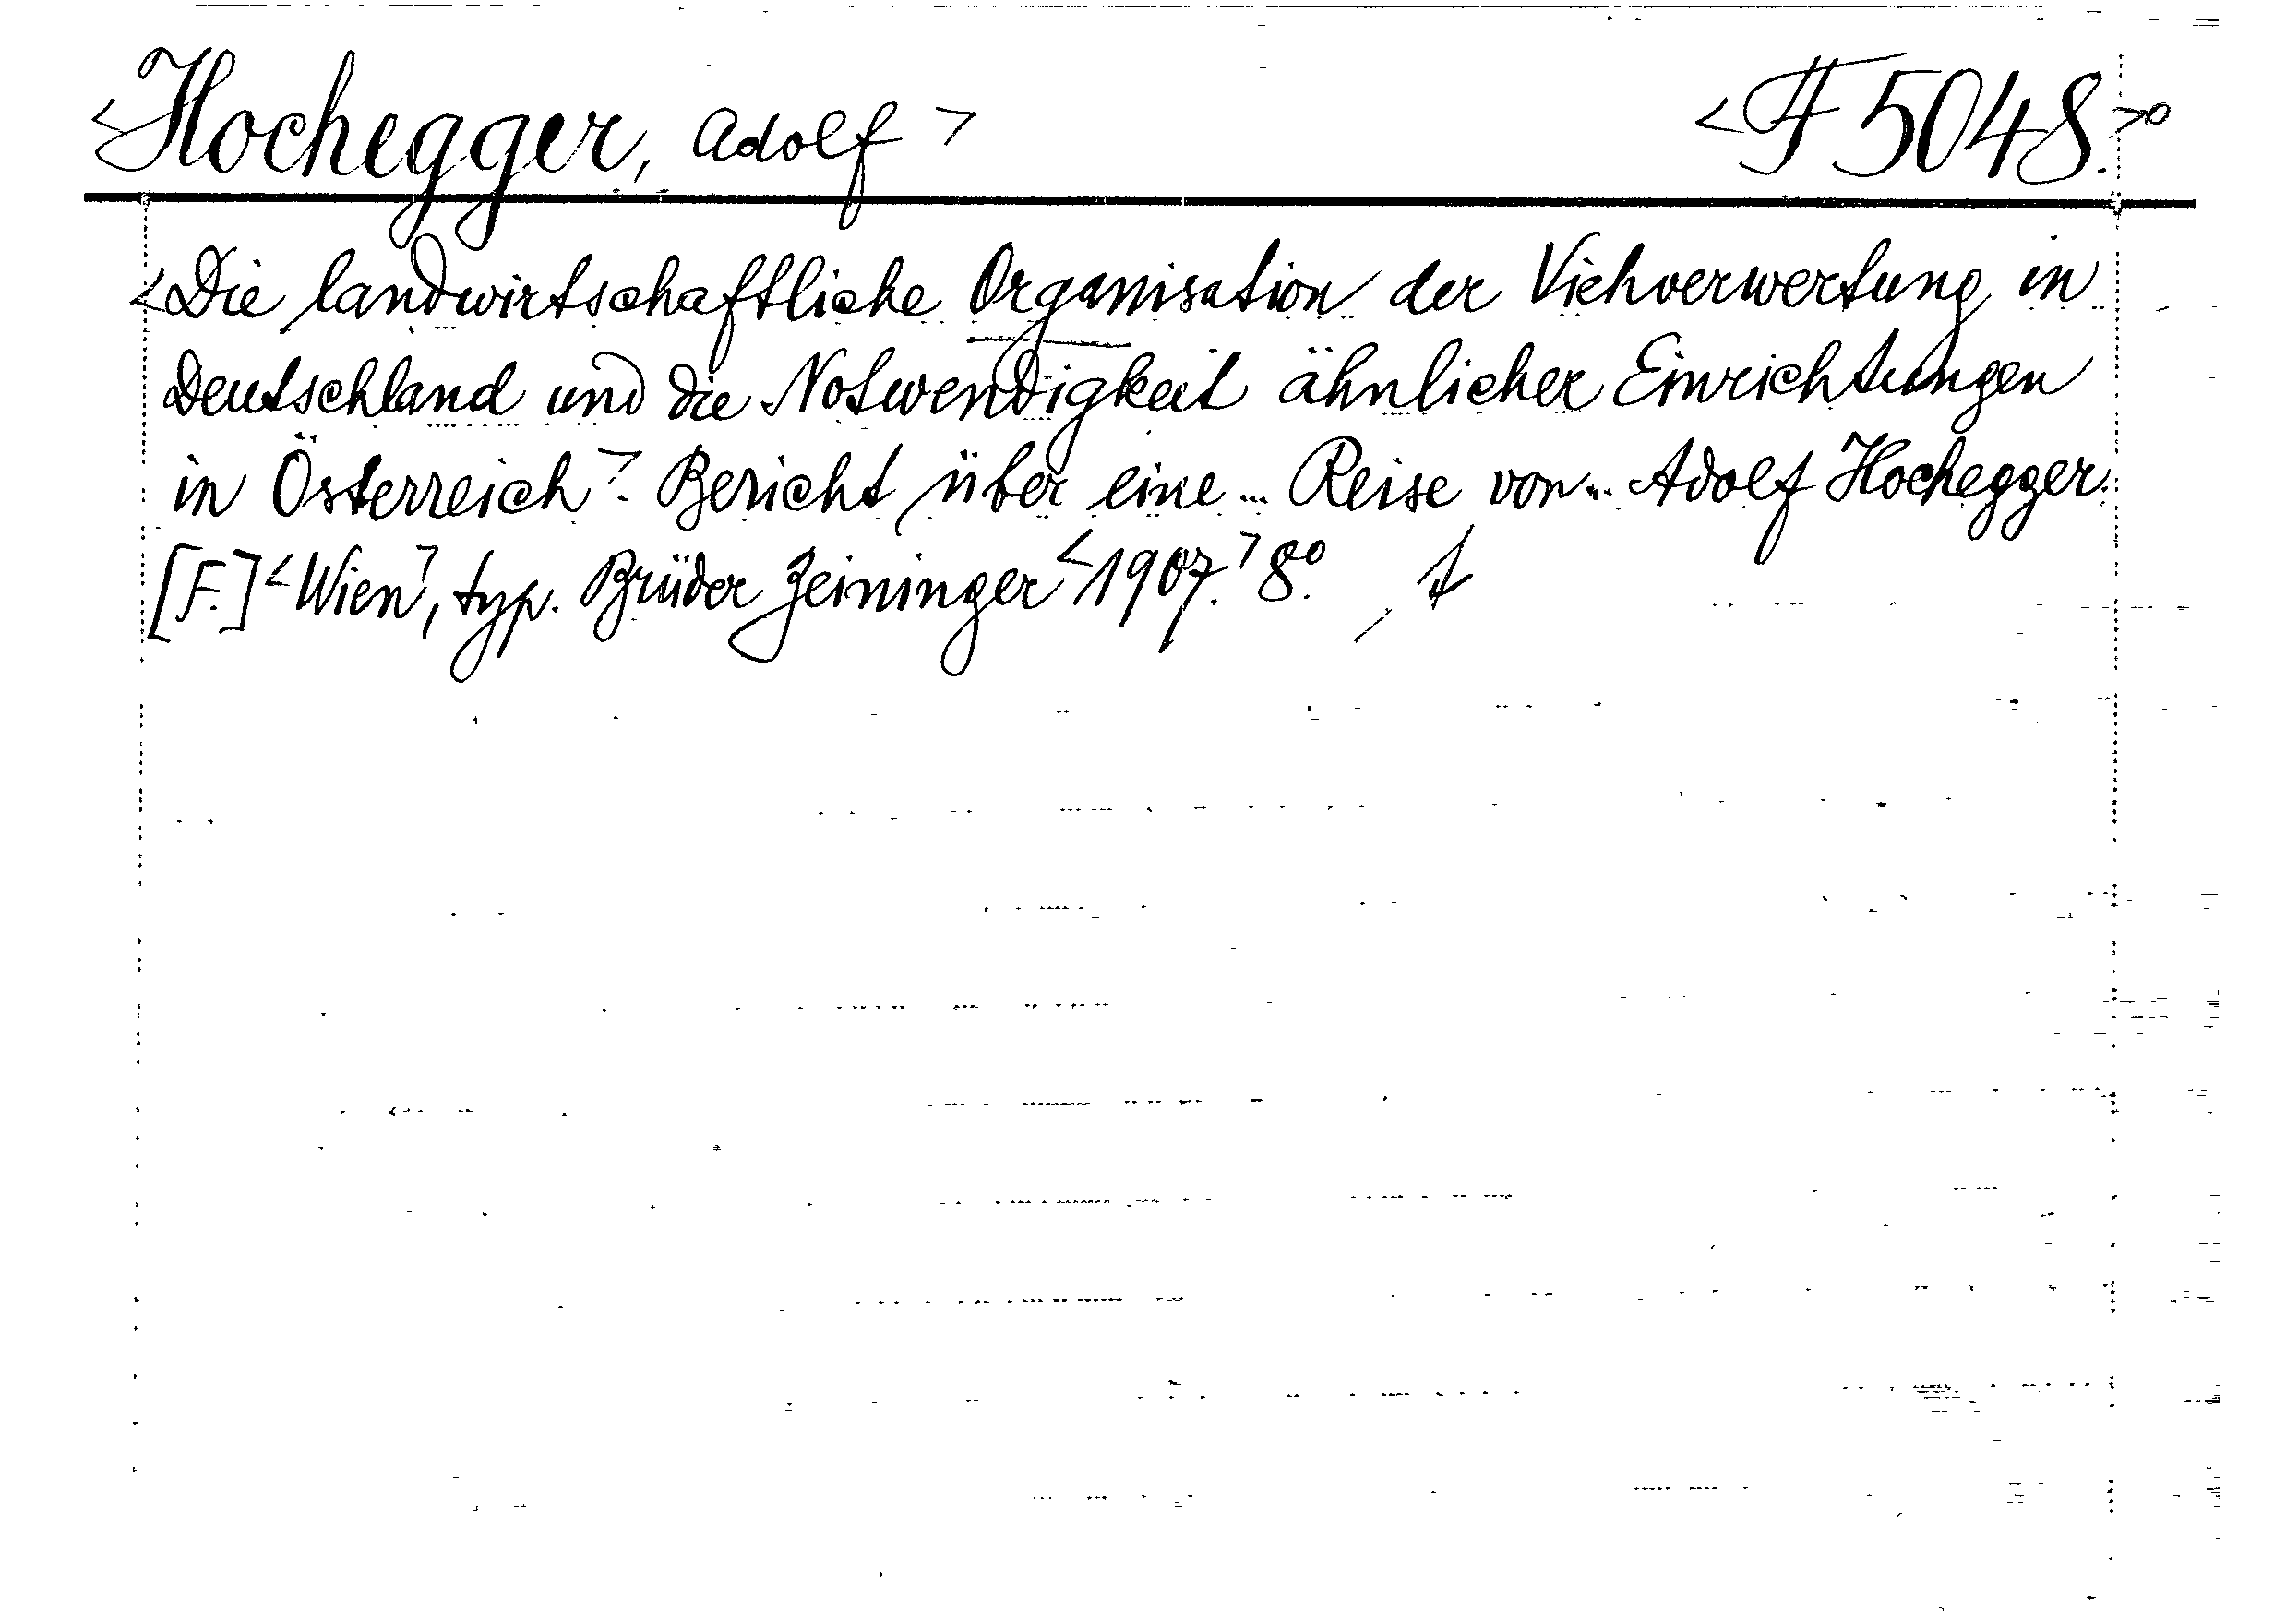 <Hochegger, Adolf> <F 5048.>o
<Die landwirtschaftliche Organisation der Viehverwertung in
Deutschland und die Notwendigkeit ähnlicher Einrichtungen
in Österreich>. Bericht über eine ... Reise von ... Adolf Hochegger.
[F.] <Wien>, typ. Brüder Zeininger <1907.> 8°.